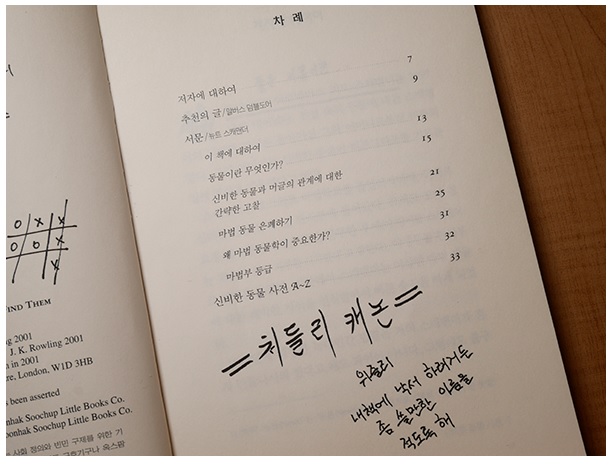 IND THEM
ng 2001
J. K. Rowling 2001
n in 2001
re, London, W1D 3HB
been asserted
Soochup Little Books Co.
oonhak Soochup Little Books Co.
사회 정의와 빈민 구제를 위한 기
차 례
저자에 대하여 7
추천의 글/알버스 덤블도어 9
서문/뉴트 스캐맨더
이 책에 대하여 13
동물이란 무엇인가? 15
신비한 동물과 머글의 관계에 대한
간략한 고찰 21
마법 동물 은폐하기 25
왜 마법 동물학이 중요한가? 31
마법부 등급 32
신비한 동물 사전 A~Z 33
처들리 캐논
위즐리
내 책에 낙서 하려거든
좀 쓸만한 이름을
적도록 해